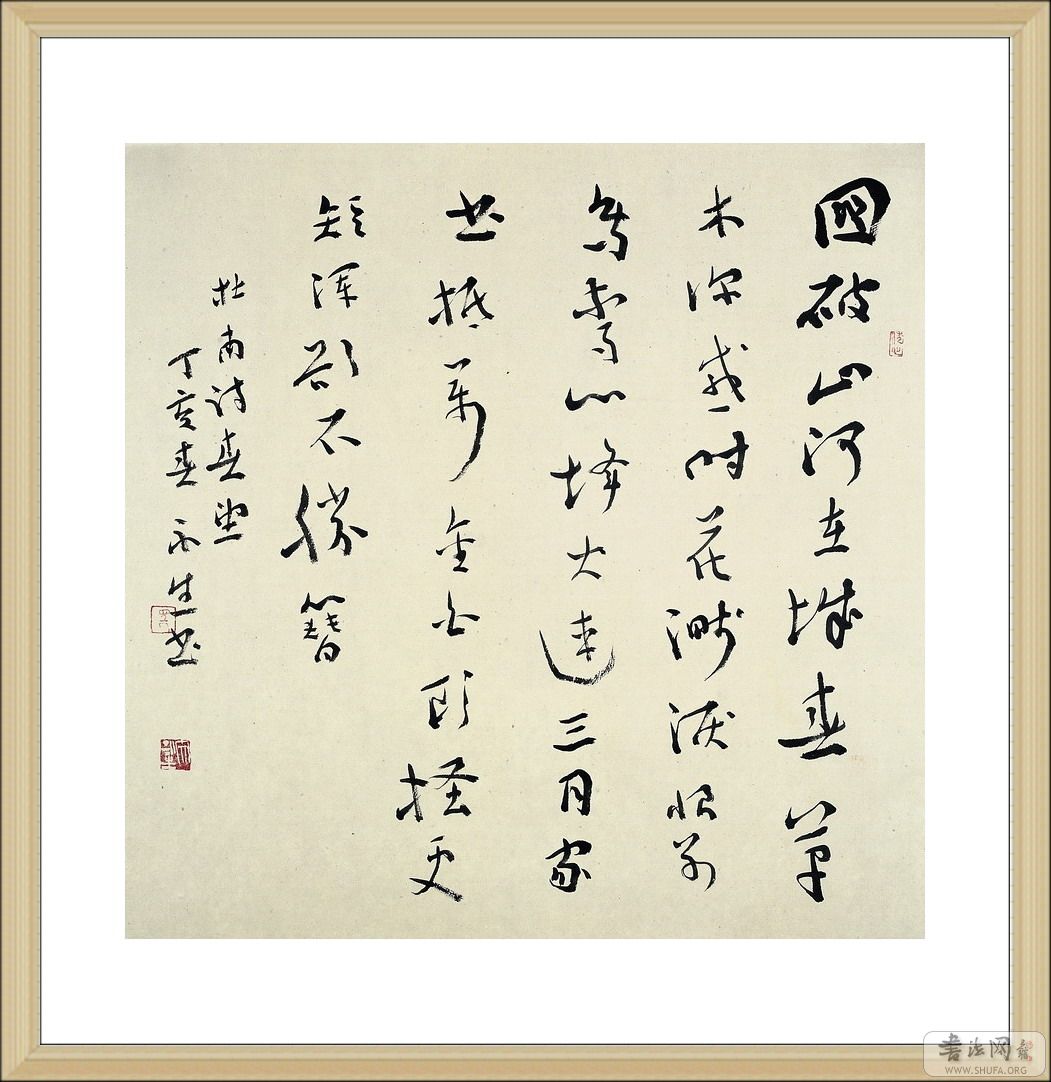 國破山河在城春草
木深感時花濺淚恨別
鳥驚心烽火連三月家
書抵萬金白頭搔更
短渾欲不勝簪
杜甫詩春望
丁亥春生書
書法网
WWW.SHUFA.ORG